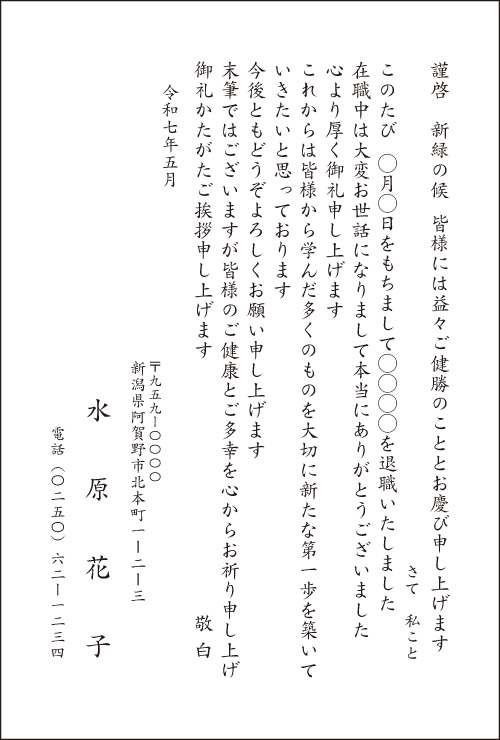 謹啓　新緑の候　皆様には益々ご健勝のこととお慶び申し上げます
さて　私こと
このたび　〇月〇日をもちまして〇〇〇〇を退職いたしました
在職中は大変お世話になりまして本当にありがとうございました
心より厚く御礼申し上げます
これからは皆様から学んだ多くのものを大切に新たな第一歩を築いて
いきたいと思っております
今後ともどうぞよろしくお願い申し上げます
末筆ではございますが皆様のご健康とご多幸を心からお祈り申し上げ
御礼かたがたご挨拶申し上げます　敬白
令和七年五月
〒九五九ー〇〇〇〇
新潟県阿賀野市北本町一ー二ー三
水原花子
電話（〇二五〇）六二ー一二三四